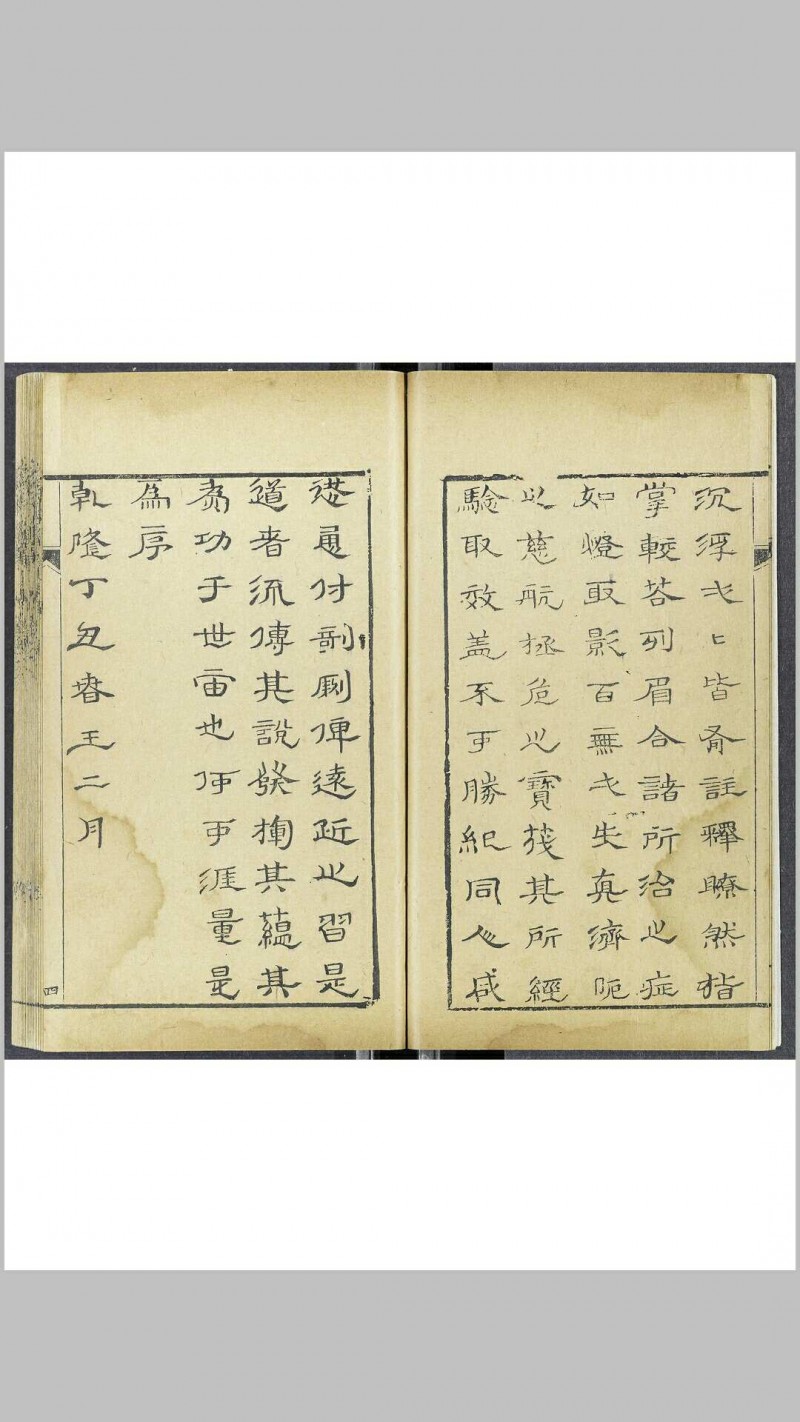 沉浮弌〻皆有註釋瞭然指
掌較若列眉合諸所治之症
如燈取影百無弌失真濟阨
之慈航拯危之寶筏其所經
驗取效蓋不可勝紀同人咸
付剞劂俾遠近之習是
道者流傳其說發其蘊其
有功于世宙也何可涯量是
為序
乾隆丁丑春王二月
四